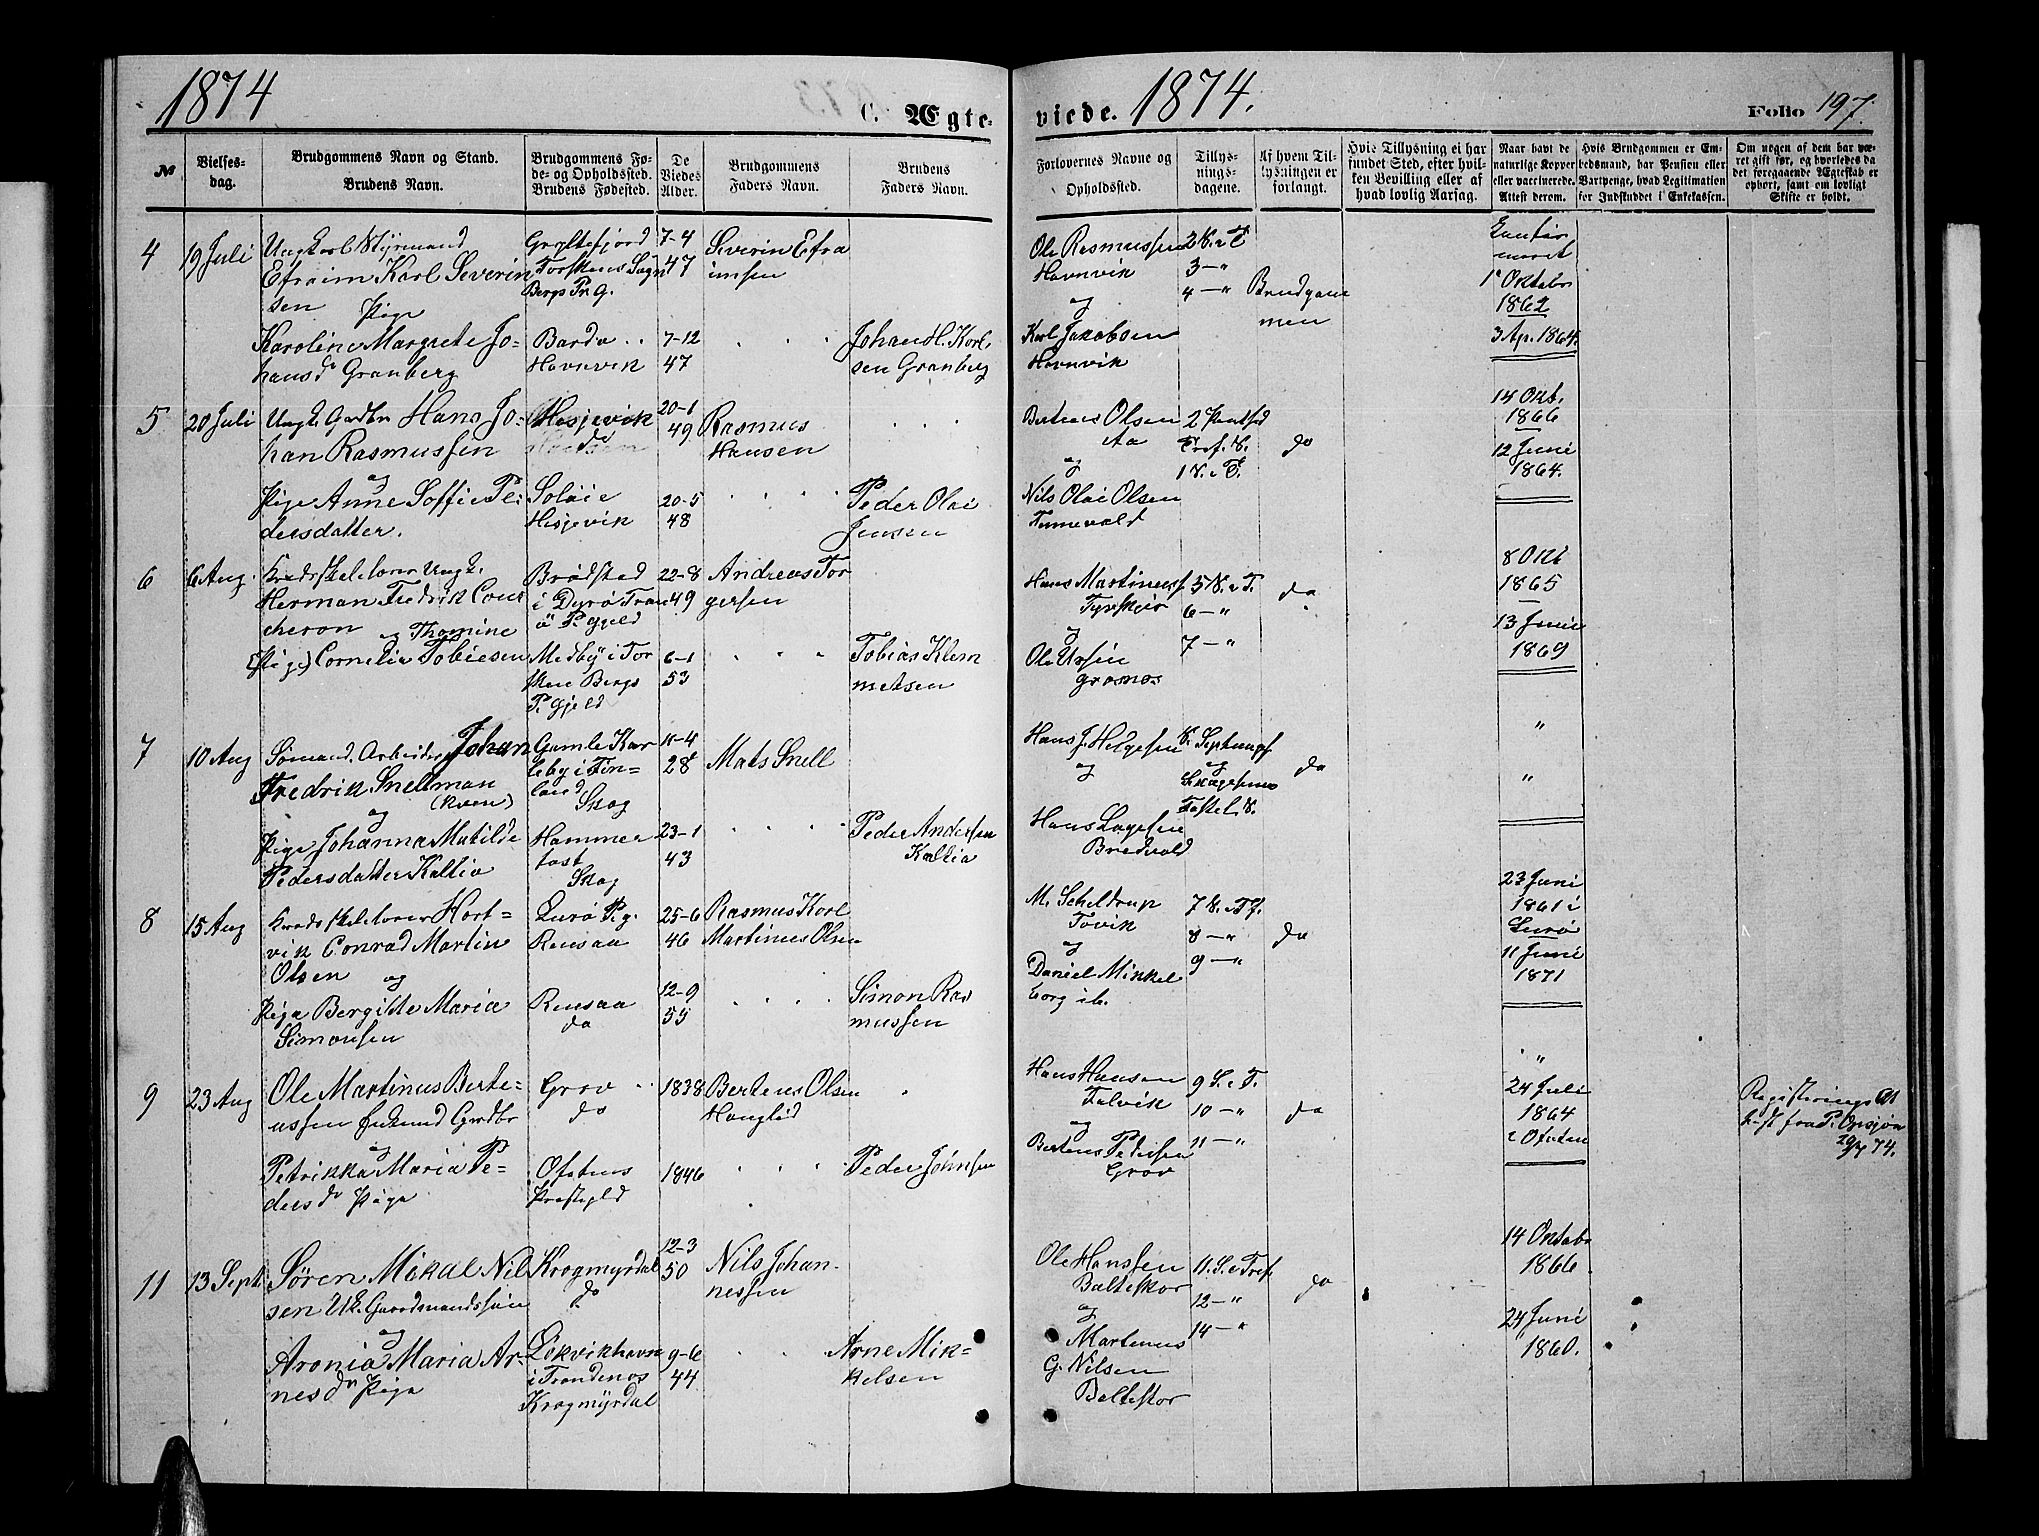 1874
C. Ægte-
viede. 1874.
Folio 197.
№
Vielses-
dag.
Brudgommens Navn og Stand.
Brudens Navn.
Brudgommens Fø-
de- og Opholdssted.
Brudens Fødested.
De
Viedes
Alder.
Brudgommens
Faders Navn.
Brudens
Faders Navn.
Forlovernes Navne og
Opholdssted.
Tillys-
nings-
dagene.
Af hvem Til-
lysningen er
forlangt.
Hvis Tillysning ei har
fundet Sted, efter hvil-
ken Bevilling eller af
hvad lovlig Aarsag.
Naar havt de
naturlige Kopper
eller vaccinerede.
Attest derom.
Hvis Brudgommen er Em-
bedsmand, har Pension eller
Vartpenge, hvad Legitimation
for Indskuddet i Enkekassen.
Om nogen af dem har væ-
ret gift før, og hvorledes da
det foregaaende Ægteskab er
ophørt, samt om lovligt
Skifte er holdt.
4
19 Juli
Ungkarl Styrmand
Efraim Karl Severin
sen Pige
Karoline Margrete Jo-
hansdr Granberg
Gryllefjord
Torskens Sogn
Bergs Pr. G.
Bardo
Havnvik
7-4
47
7-12
47
Severin Efra
imsen
Johan L. Karl
sen Granberg
Ole Rasmussen
Havnvik
og
Karl Jakobsen
Havnvik
2 S. e T
3 — "
4 — "
Brudgom
men
1 Oktobr
1862
3 Apr. 1864.
5
20 Juli
Ungk. Gardbr Hans Jo-
han Rasmussen
og
Pige Anne Soffie Pe
dersdatter.
Hesjevik
do
Soløie
Hesjevik
20-1
49
20-5
48
Rasmus
Hansen
Peder Olai
Jensen
Berteus Olsen
Aa
og
Nils Olai Olsen
Tennevold
2 Pintsed
Tref. S.
1 S. e T.
do
14 Okt.
1866
12 Juni
1864.
6
6 Aug.
Kredsskolelærer Ungk.
Herman Fredrik Cour
cheron og Thomine
(Pige) Cornelia Tobiesen
Brødsted
i Dyrø Tran
ø P. gjeld
Medby i Tor
sken Bergs
P. gjeld
22-8
49
6-1
53
Andreas Tor
gersen
Tobias Klem
metsen
Hans Martinuss.
og
Ole Ursin
Grasnes
5 S. e T.
6 — "
7 — "
do
8 Okt
1865
13 Juni
1869
7
10 Aug
Sømand. Arbeider Johan
Fredrik Snellman
(kven)
og
Pige Johanna Matilde
Pedersdatter Kaltio
Gamle Kar
leby i Fin-
land
Skog
Hammer
fest
Skog
11-4
28
23-1
43
Mats Snell
Peder Andersen
Kaltio
Hans J. Helgesen
og
Hans Lagesen
Bredvold
S. Septuag.
og
Sexagesimæ
Fastel. S.
do
"
"
8
15 Aug
Kredsskolelærer Hart-
vik Conrad Martin
Olsen og
Pige Bergitte Maria
Simonsen
Lurø P. g.
Rensaa
Rensaa
do
25-6
46
12-9
55
Rasmus Karl
Martinus Olsen
Simon Ras
mussen
M. Scheldrup
Tovik
og
Daniel Mikkel
borg ib.
7 S. e Tf.
8 — "
9 — "
do
23 Juni
1861 i
Lurø
11 Juni
1871
9
23 Aug
Ole Martinus Berte-
ussen Enkemd Gardbr
og
Petrikka Maria Pe-
dersdr Pige
Grov
do
Ofotens
Præstegld
1838
1846
Berteus Olsen
Hanglid
Peder Johnsen
Hans Hansen
Falvik
og
Berteus Pedersen
Grov
9 S. e T.
10 — "
11 — "
do
"
24 Juli
1864
i Ofoten
Registrerings At
test fra P. Gusjør
29/7 74.
11
13 Sept
Søren Mikal Nil
sen Uk. Gaardmandssøn
og
Aronia Maria Ar-
nesdr Pige
Krogmyrdal
do
Løkvikhavn
i Trondenes
Krogmyrdal
12-3
50
9-6
44
Nils Johan-
nessen
Arne Mik-
kelsen
Ole Hanssen
Balteskar
og
Martenus
G. Nilsen
Belteskar
11. S. e Tref.
12 — "
14 — "
do
14 Oktobr
1866
24 Juni
1860.